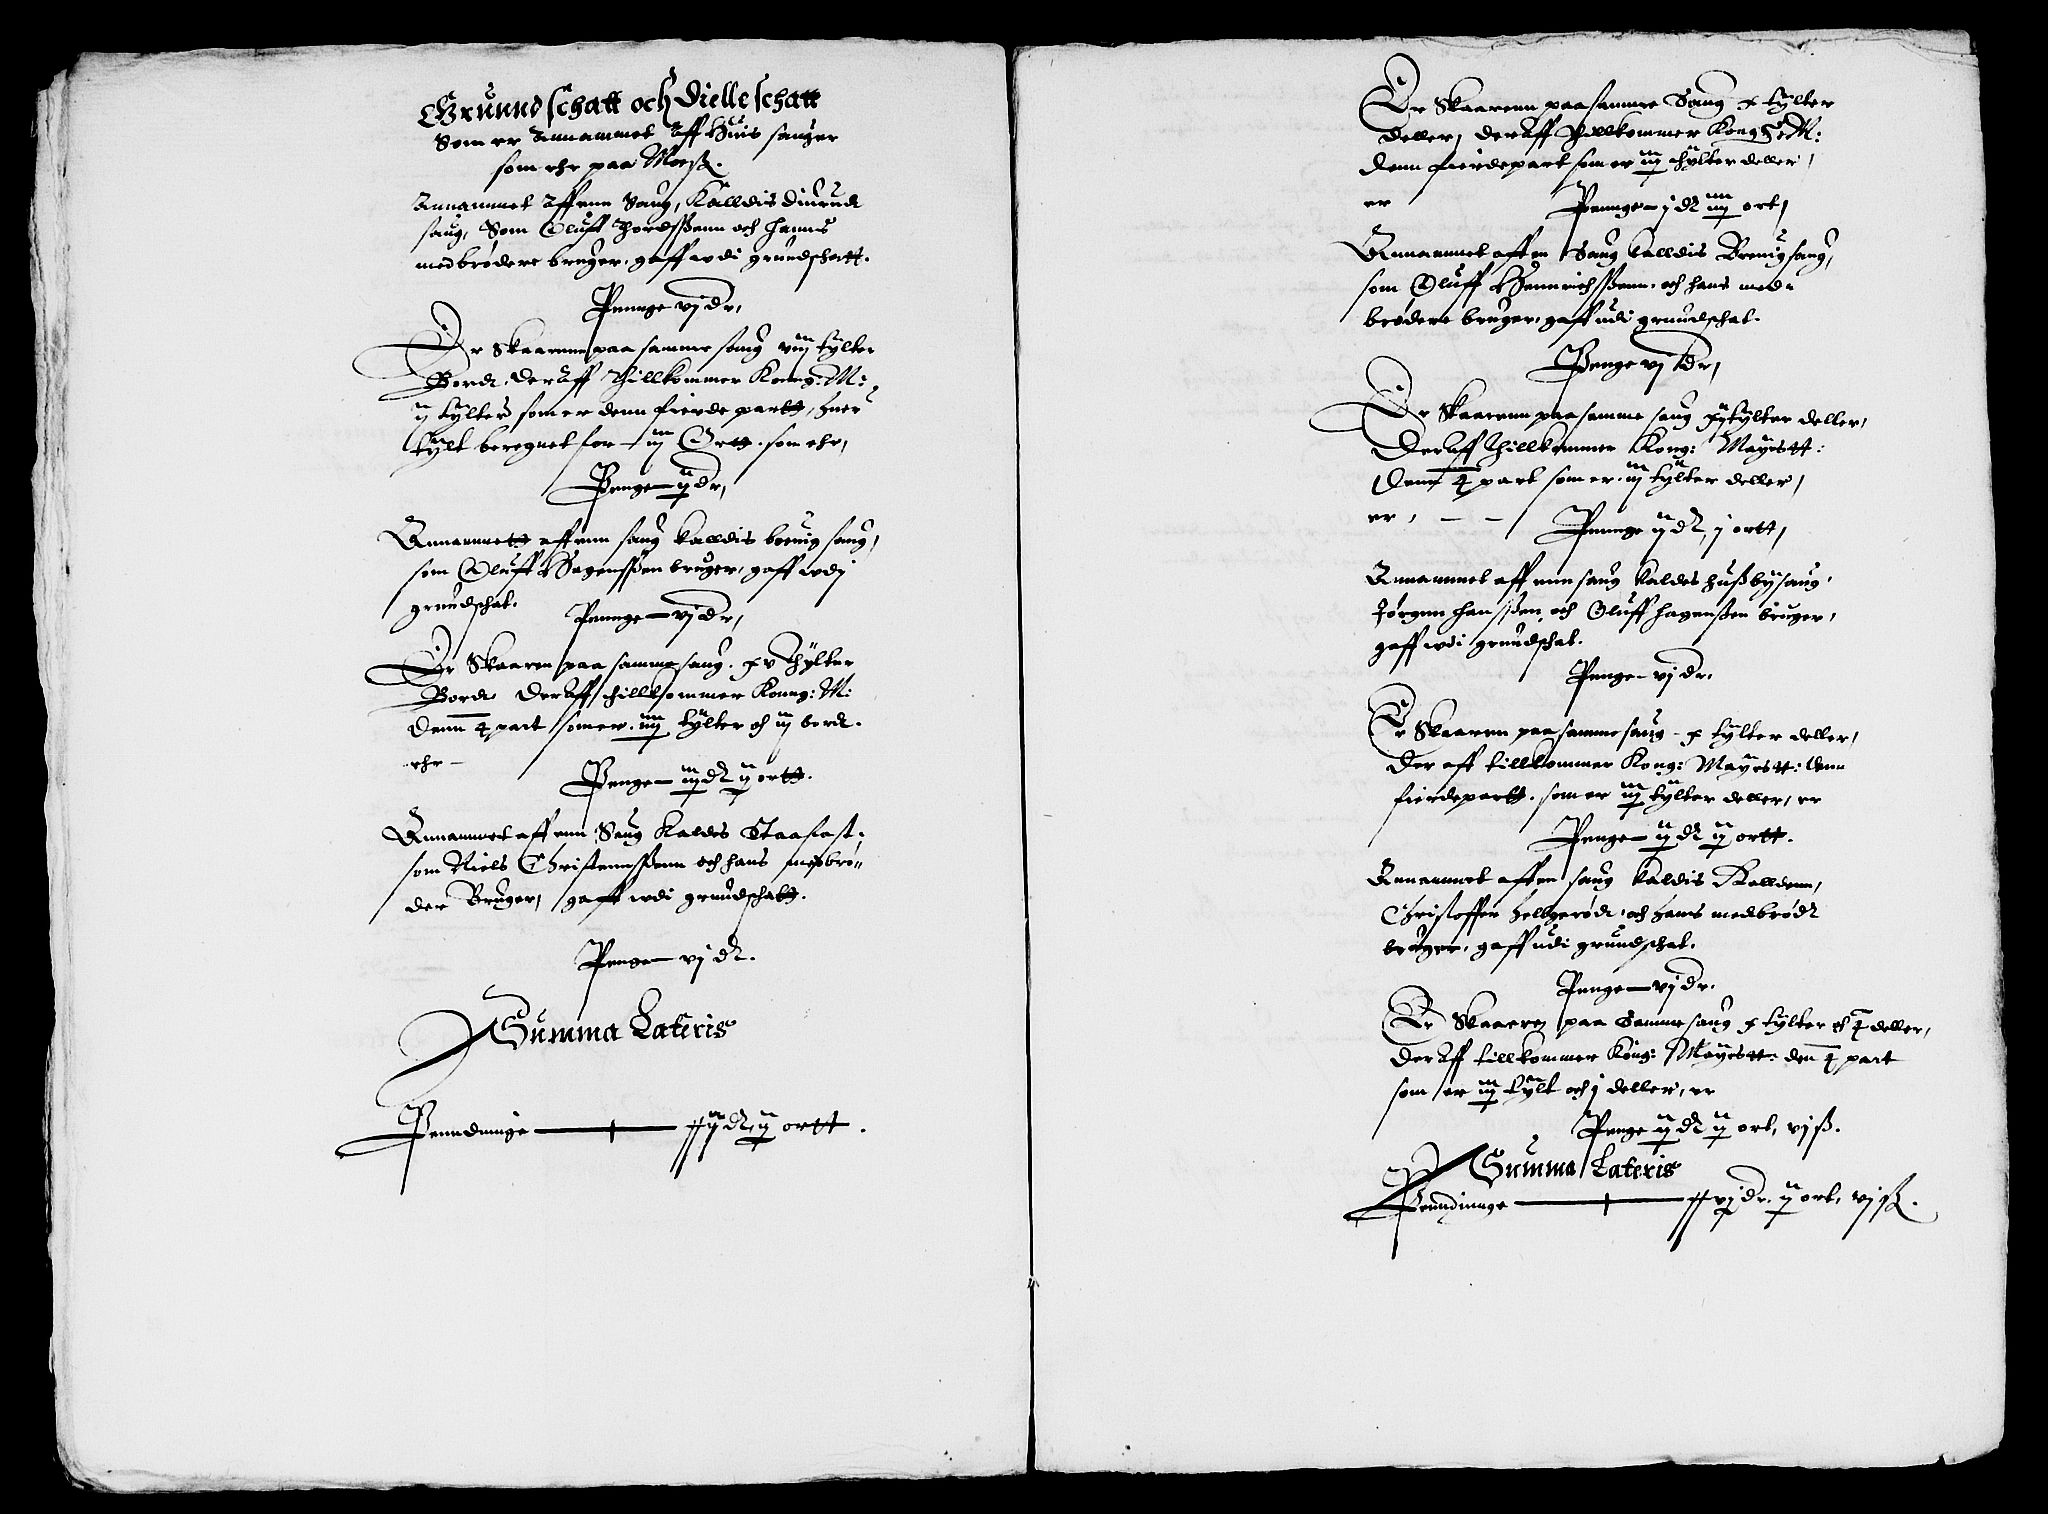 Grunnd schatt och Dielle schatt
Som er Annammet Aff huis sauger
som ehr paa Moesß.
Annammet Aff enn Saug, Kalldis Diurud
saug, Som Oluff Thordsßenn och hanns
medbrødere bruger, gaff wdi grundschatt.
Pennge vj dr,
Er Skaarenn paa samme saug viij tylter
Bordt, der Aff thillkommer Konng: M:
ij tylter som er denn fierde partt, huer
tylt beregnet for iij Ortt. som ehr,
Penge ij dr,
Annammett aff enn saug kalldis breuig saug,
som Oluff Hagensßen bruger, gaff wdj
grundschat.
Pennge vj dr,
Er Skaaren paa samme saug. xv Thylter
Bordt Der Aff thillkommer Konng: M:
denn 4 part som er. iiij tylter och iij bordt.
ehr
Penge iij dr ij ortt.
Annammet aff enn Saug Kaldes Staasiast,
som Niels Christennsßenn och hans medbrø-
der Bruger, gaff wdi grundschatt.
Penge vj dr.
Summa Lateris
Penndinnge ij dr, ij ortt.
Er Skaarenn paa samme Saug x tylter
deller, der Aff Thillkommer Kong: M:
denn fierdepart som er iij thylter deller,
er
Pennge j dr iiij ort,
Annammet aff en Saug kalldis Breuig saug,
som Oluff Hennrichsßenn. och hans med-
brødere bruger, gaff udi grundschat.
Penge vj dr,
Er Skaarenn paa samme saug xij tylter deller,
Der Aff thillkommer Kong: Mayestt:
denn 4 part som er. iij tylter deller,
er,
Pennge ij dr, j ortt,
Annammet aff enn saug kaldes Hußbysaug,
Jørgenn Hansßen och Oluff Hagenßen bruger,
gaff wdi grundschat.
Penge vj dr.
Er Skaaren paa samme saug x tylter deller,
der aff tillkommer Kong: Mayestt: denn
fierdepartt. som er iij tylter deller, er
Penge ij dr ij ortt.
Annammet aff en saug kaldis Kolldenn,
Christoffer Hellgerødt, och hans medbrødr
bruger, gaff udi grundschat.
Penge vj dr.
Er Skaaren paa Samme saug x tylter och 4 deller,
der Aff tillkommer Kong: Mayestt: den 4 part
som er iij tylt och j deller, er
Penge ij dr ij ort, vj ß.
Summa Lateris
Penndinnge vj dr. ij ort, vj ß.